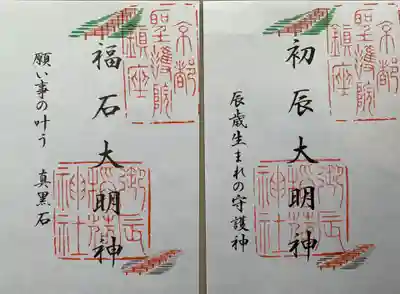 京都
聖護院
鎮座
初辰大明神
御辰
稲荷
神社
辰歳生まれの守護神
京都
聖護院
鎮座
福石大明神
御辰
稲荷
神社
願い事の叶う 真黒石